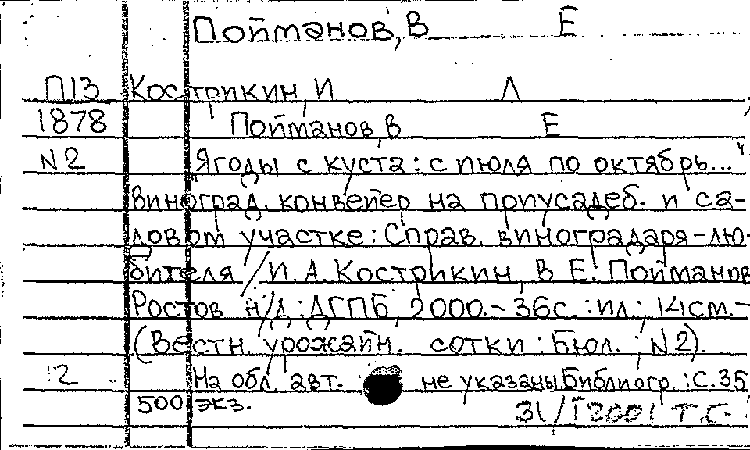 Пойманов, В Е
П13 Кострикин, И А
1878 Пойманов, В Е
N2 Ягоды с куста: с июля по октябрь..."
Виноград. конвейер на приусадеб. и са-
довом участке: Справ. виноградаря-лю-
бителя / И. А. Кострикин, В Е. Пойманов
Ростов н/Д: ДГПБ, 2000.- 36с.: ил; 14см.-
(Вестн. урожайн. сотки: Бюл.; N2).
2 На обл. авт. не указаны Библиогр.: с. 35
500 экз. 31/I 2001 Т.Г.